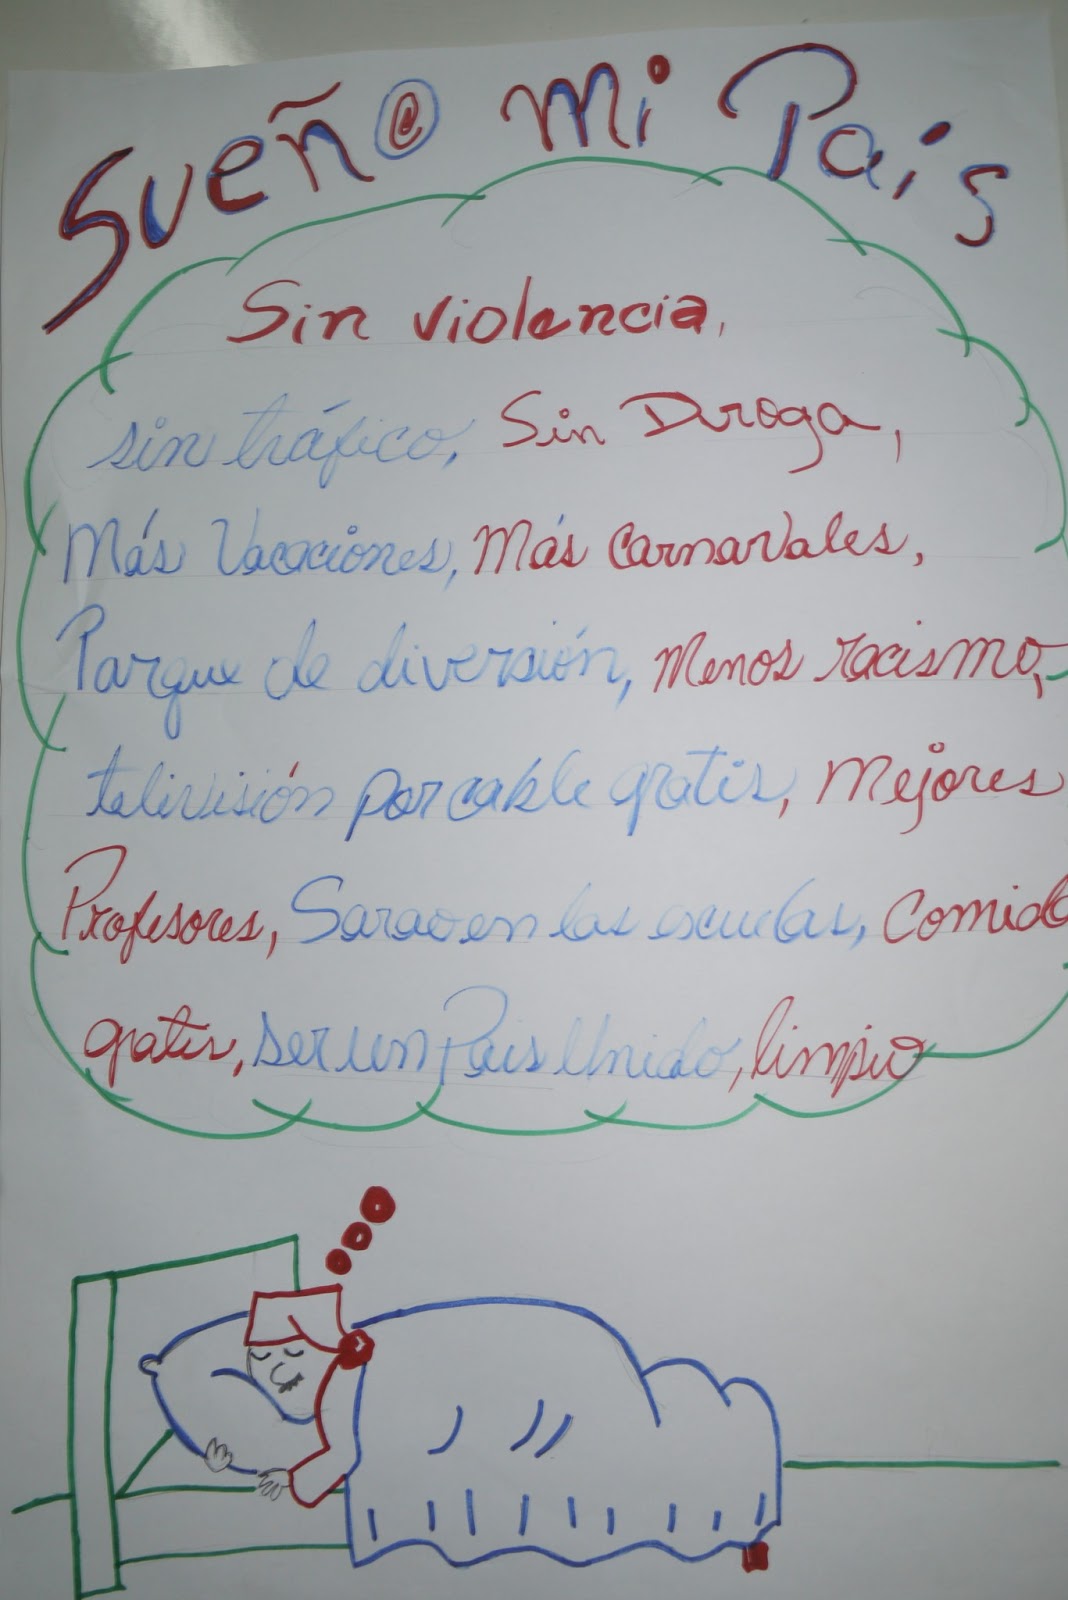 Sueñ@ mi Pais
Sin violencia,
sin tráfico, Sin Droga,
Más Vacaciones, Más Carnavales,
Parque de diversión, Menos racismo,
televisión por cable gratis, Mejores
Profesores, Sarao en las escuelas, Comida
gratis, ser un Pais Unido, limpio